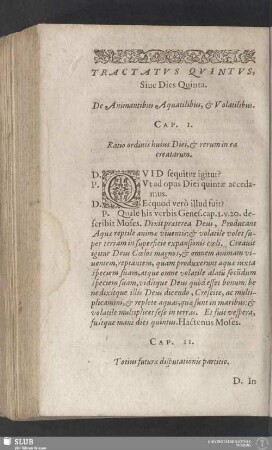 TRACTATVS QVINTVS,
Siue Dies Quinta.
De Animantibus Aquatilibus, & Volatilibus.
CAP. I.
Ratio ordinis huius Diei, & rerum in ea
creatarum.
D. QVID sequitur igitur?
P. Vt ad opus Diei quintæ acceda-
mus.
D. Ecquod verò illud fuit?
P. Quale his verbis Genes. cap. 1. v. 20. de-
scribit Moses. Dixit præterea Deus, Producant
Aquæ reptile animæ viuentis: & volatile volet su-
per terram in superficie expansionis cœli. Creauit
igitur Deus Cœtos magnos, & omnem animam vi-
uentem, reptantem, quam produxerunt aquæ iuxta
speciem suam, atque omne volatile alatũ secũdum
speciem suam, viditque Deus quòd esset bonum. be
nedixitque illis Deus dicendo, Crescite, ac multi-
plicamini, & replete aquas, quæ sunt in maribus: &
volatile multiplicet sese in terras. Et fuit vespera,
fuitque mane dies quintus. Hactenus Moses.
CAP. II.
Totius futuræ disputationis partitio.
D. In
SLUB